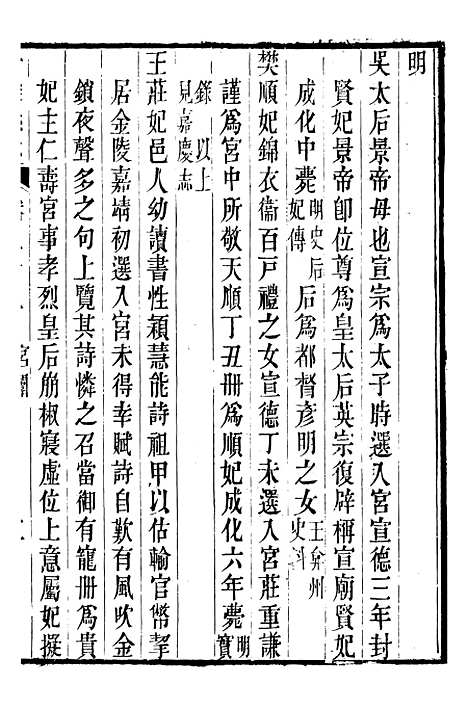 明
吳太后景帝母也宣宗為太子時選入宮宣德三年封
賢妃景帝卽位尊為皇太后英宗復辟稱宣廟賢妃
成化中薨明史后妃傳后為都督彥明之女王弇州史料
樊順妃錦衣衞百戸禮之女宣德丁未選入宮莊重謙
謹為宮中所敬天順丁丑冊為順妃成化六年薨明實
錄以上見嘉慶志
王莊妃邑人幼讀書性穎慧能詩祖甲以估輸官幣挈
居金陵嘉靖初選入宮未得幸賦詩自歎有風吹金
鎖夜聲多之句上覽其詩憐之召當御有寵冊為貴
妃主仁壽宮事孝烈皇后崩椒寢虛位上意屬妃擬
宮闈